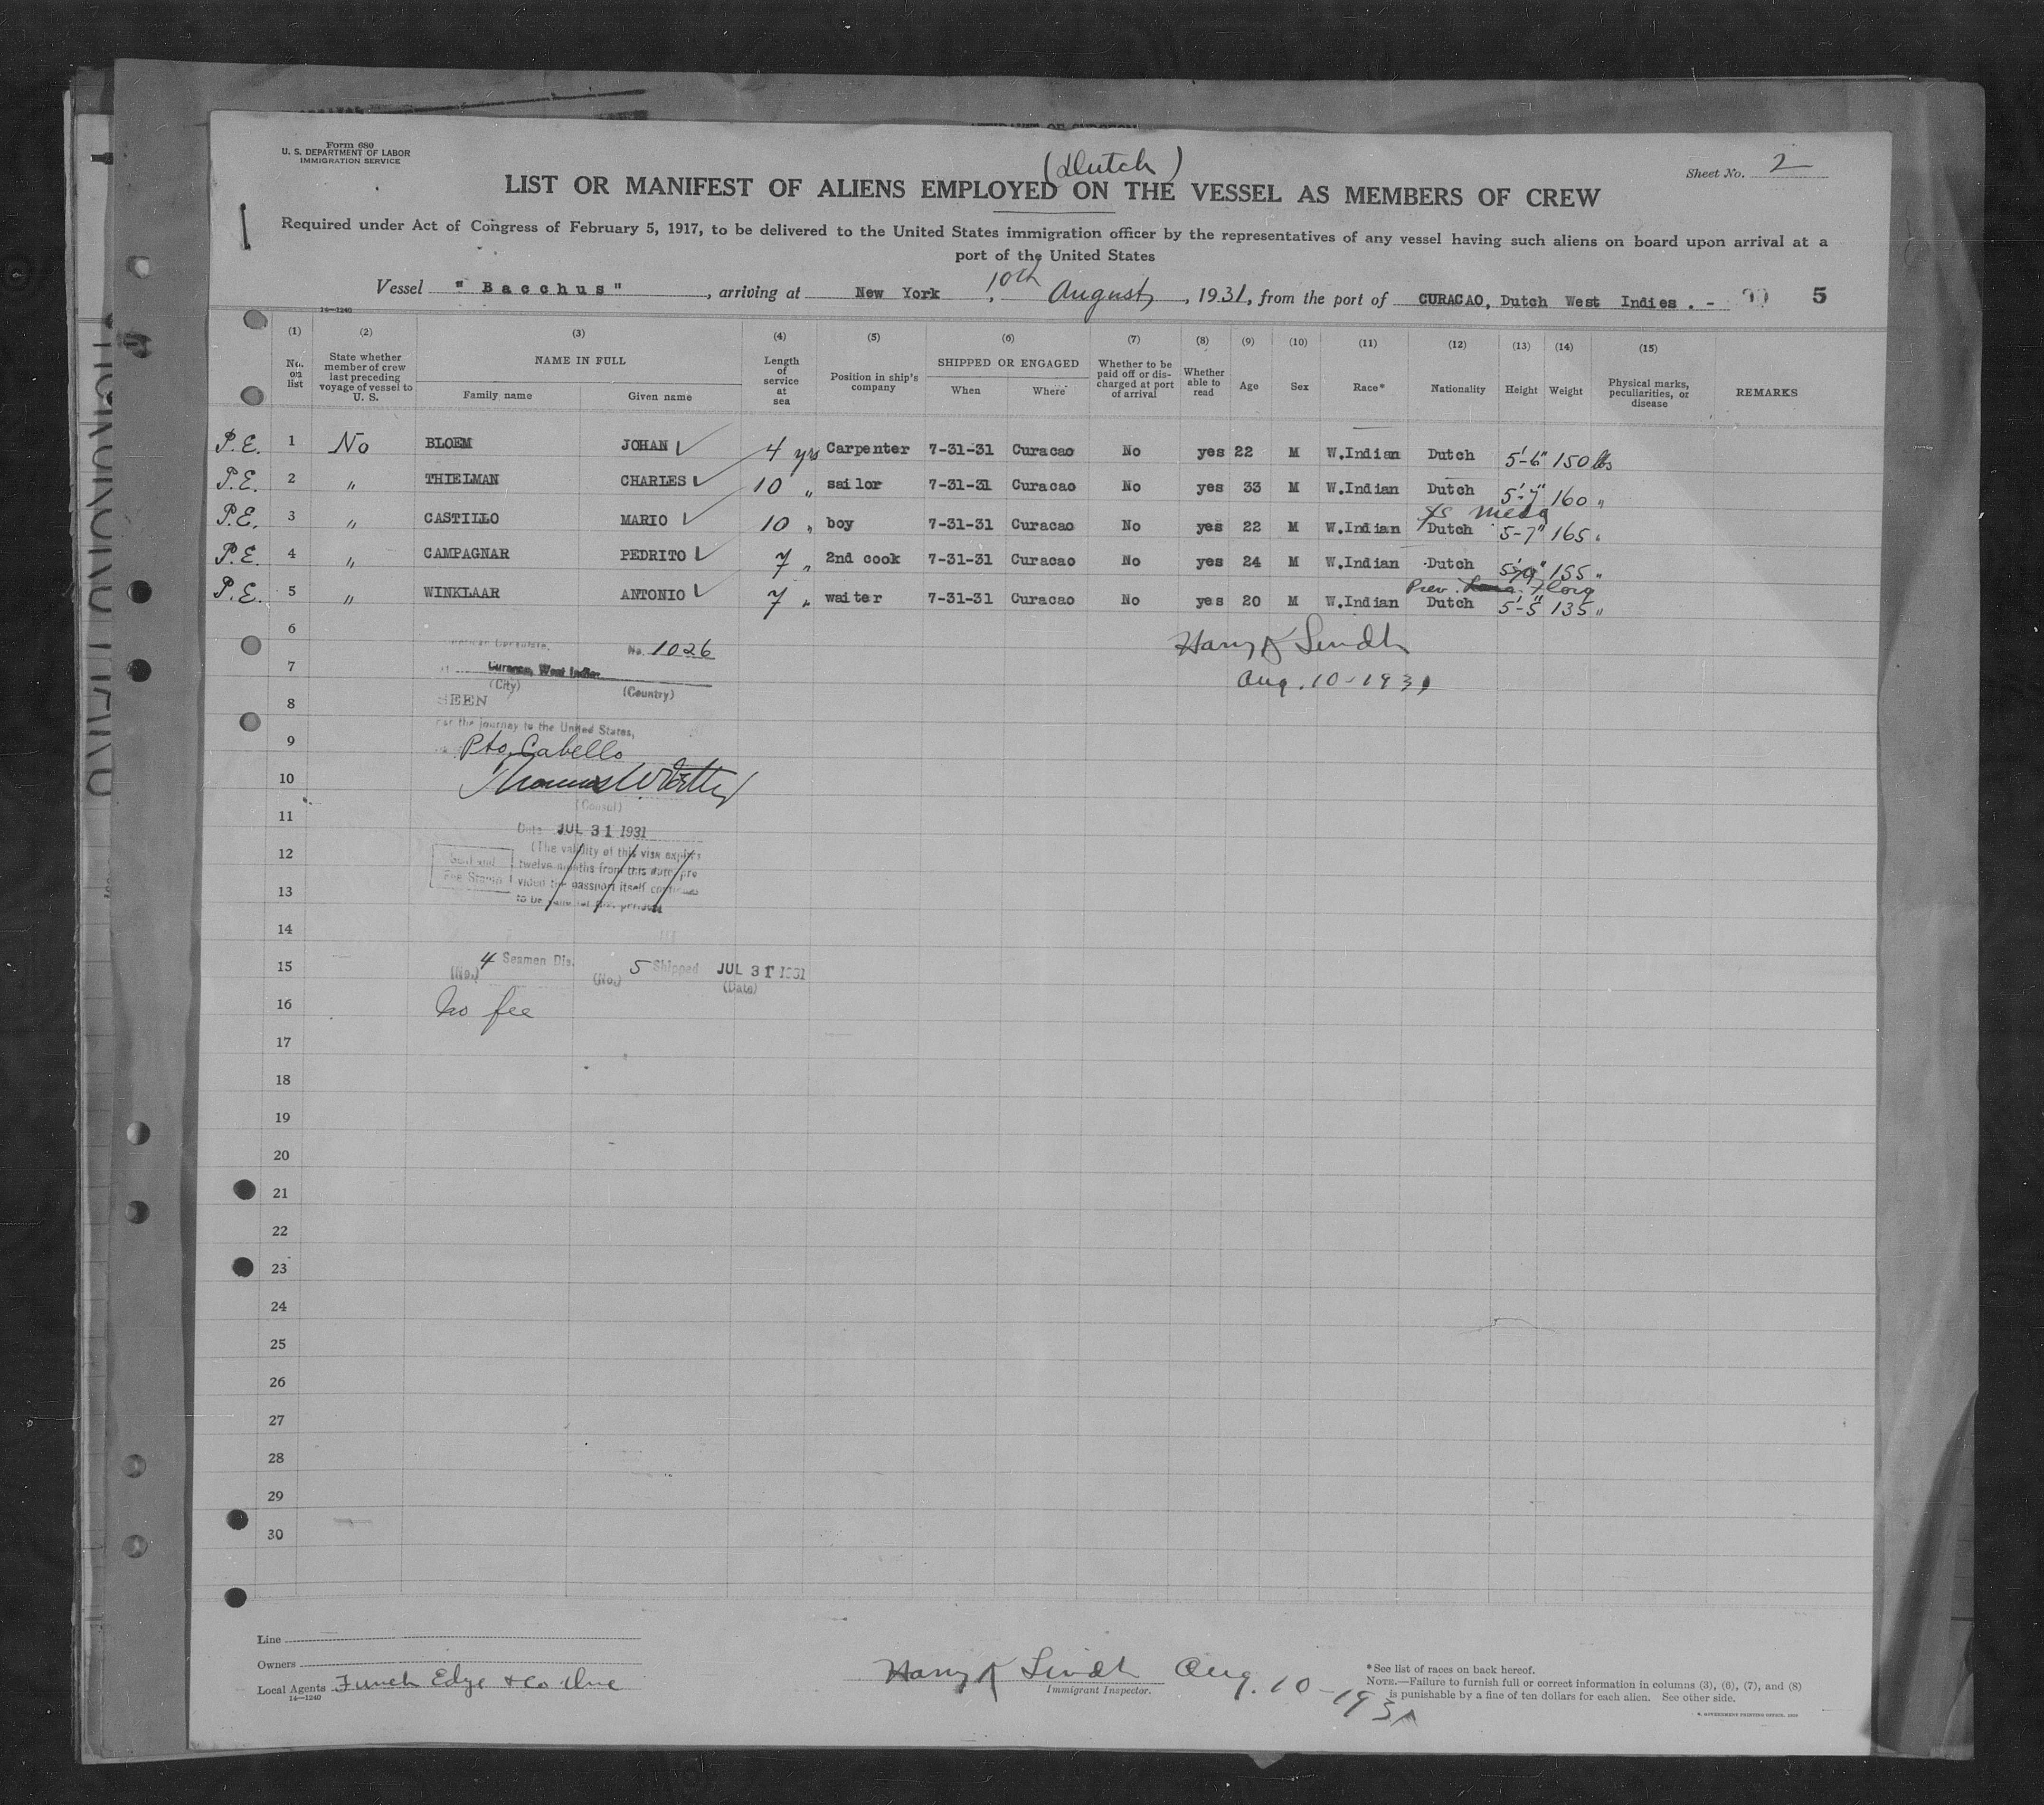 Form 680
U. S. DEPARTMENT OF LABOR
IMMIGRATION SERVICE
Sheet No. 2
(Dutch)
LIST OR MANIFEST OF ALIENS EMPLOYED ON THE VESSEL AS MEMBERS OF CREW
Required under Act of Congress of February 5, 1917, to be delivered to the United States immigration officer by the representatives of any vessel having such aliens on board upon arrival at a
port of the United States
Vessel "Bacchus", arriving at New York, 10th August, 1931, from the port of CURACAO, Dutch West Indies. - 5
14—1240
(1) (2) (3) (4) (5) (6) (7) (8) (9) (10) (11) (12) (13) (14) (15)
No. on list
State whether member of crew last preceding voyage of vessel to U. S.
NAME IN FULL
Family name
Given name
Length of service at sea
Position in ship's company
SHIPPED OR ENGAGED
When
Where
Whether to be paid off or discharged at port of arrival
Whether able to read
Age
Sex
Race*
Nationality
Height
Weight
Physical marks, peculiarities, or disease
REMARKS
P.E. 1 No BLOEM JOHAN 4 yrs Carpenter 7-31-31 Curacao No yes 22 M W.Indian Dutch 5'-6" 150 lbs
P.E. 2 " THIELMAN CHARLES 10 " sailor 7-31-31 Curacao No yes 33 M W.Indian Dutch 5'-7" 160 "
P.E. 3 " CASTILLO MARIO 10 " boy 7-31-31 Curacao No yes 22 M W.Indian Dutch 5-7" 165 "
P.E. 4 " CAMPAGNAR PEDRITO 7 " 2nd cook 7-31-31 Curacao No yes 24 M W.Indian Dutch 155 "
Prev.
P.E. 5 " WINKLAAR ANTONIO 7 " waiter 7-31-31 Curacao No yes 20 M W.Indian Dutch 5'-5" 135 "
6
No. 1026
Harry K Lindh
7
Curacao, West Indies
(City) (Country)
Aug. 10-1931
8
SEEN
For the journey to the United States,
9
Pto. Cabello
10
(Consul)
11
Date JUL 31 1931
12
(The validity of this visa expires
Seal and
twelve months from this date, pro
Fee Stamp
13
vided the passport itself continues
to be valid for that period)
14
15
4 Seamen Dis. 5 Shipped JUL 31 1931
(No.) (No.) (Date)
16
No fee
17
18
19
20
21
22
23
24
25
26
27
28
29
30
Line
Owners
Local Agents Funch Edye & Co Inc
14—1240
Harry K Lindh Aug. 10-1931
Immigrant Inspector.
*See list of races on back hereof.
NOTE.—Failure to furnish full or correct information in columns (3), (6), (7), and (8)
is punishable by a fine of ten dollars for each alien. See other side.